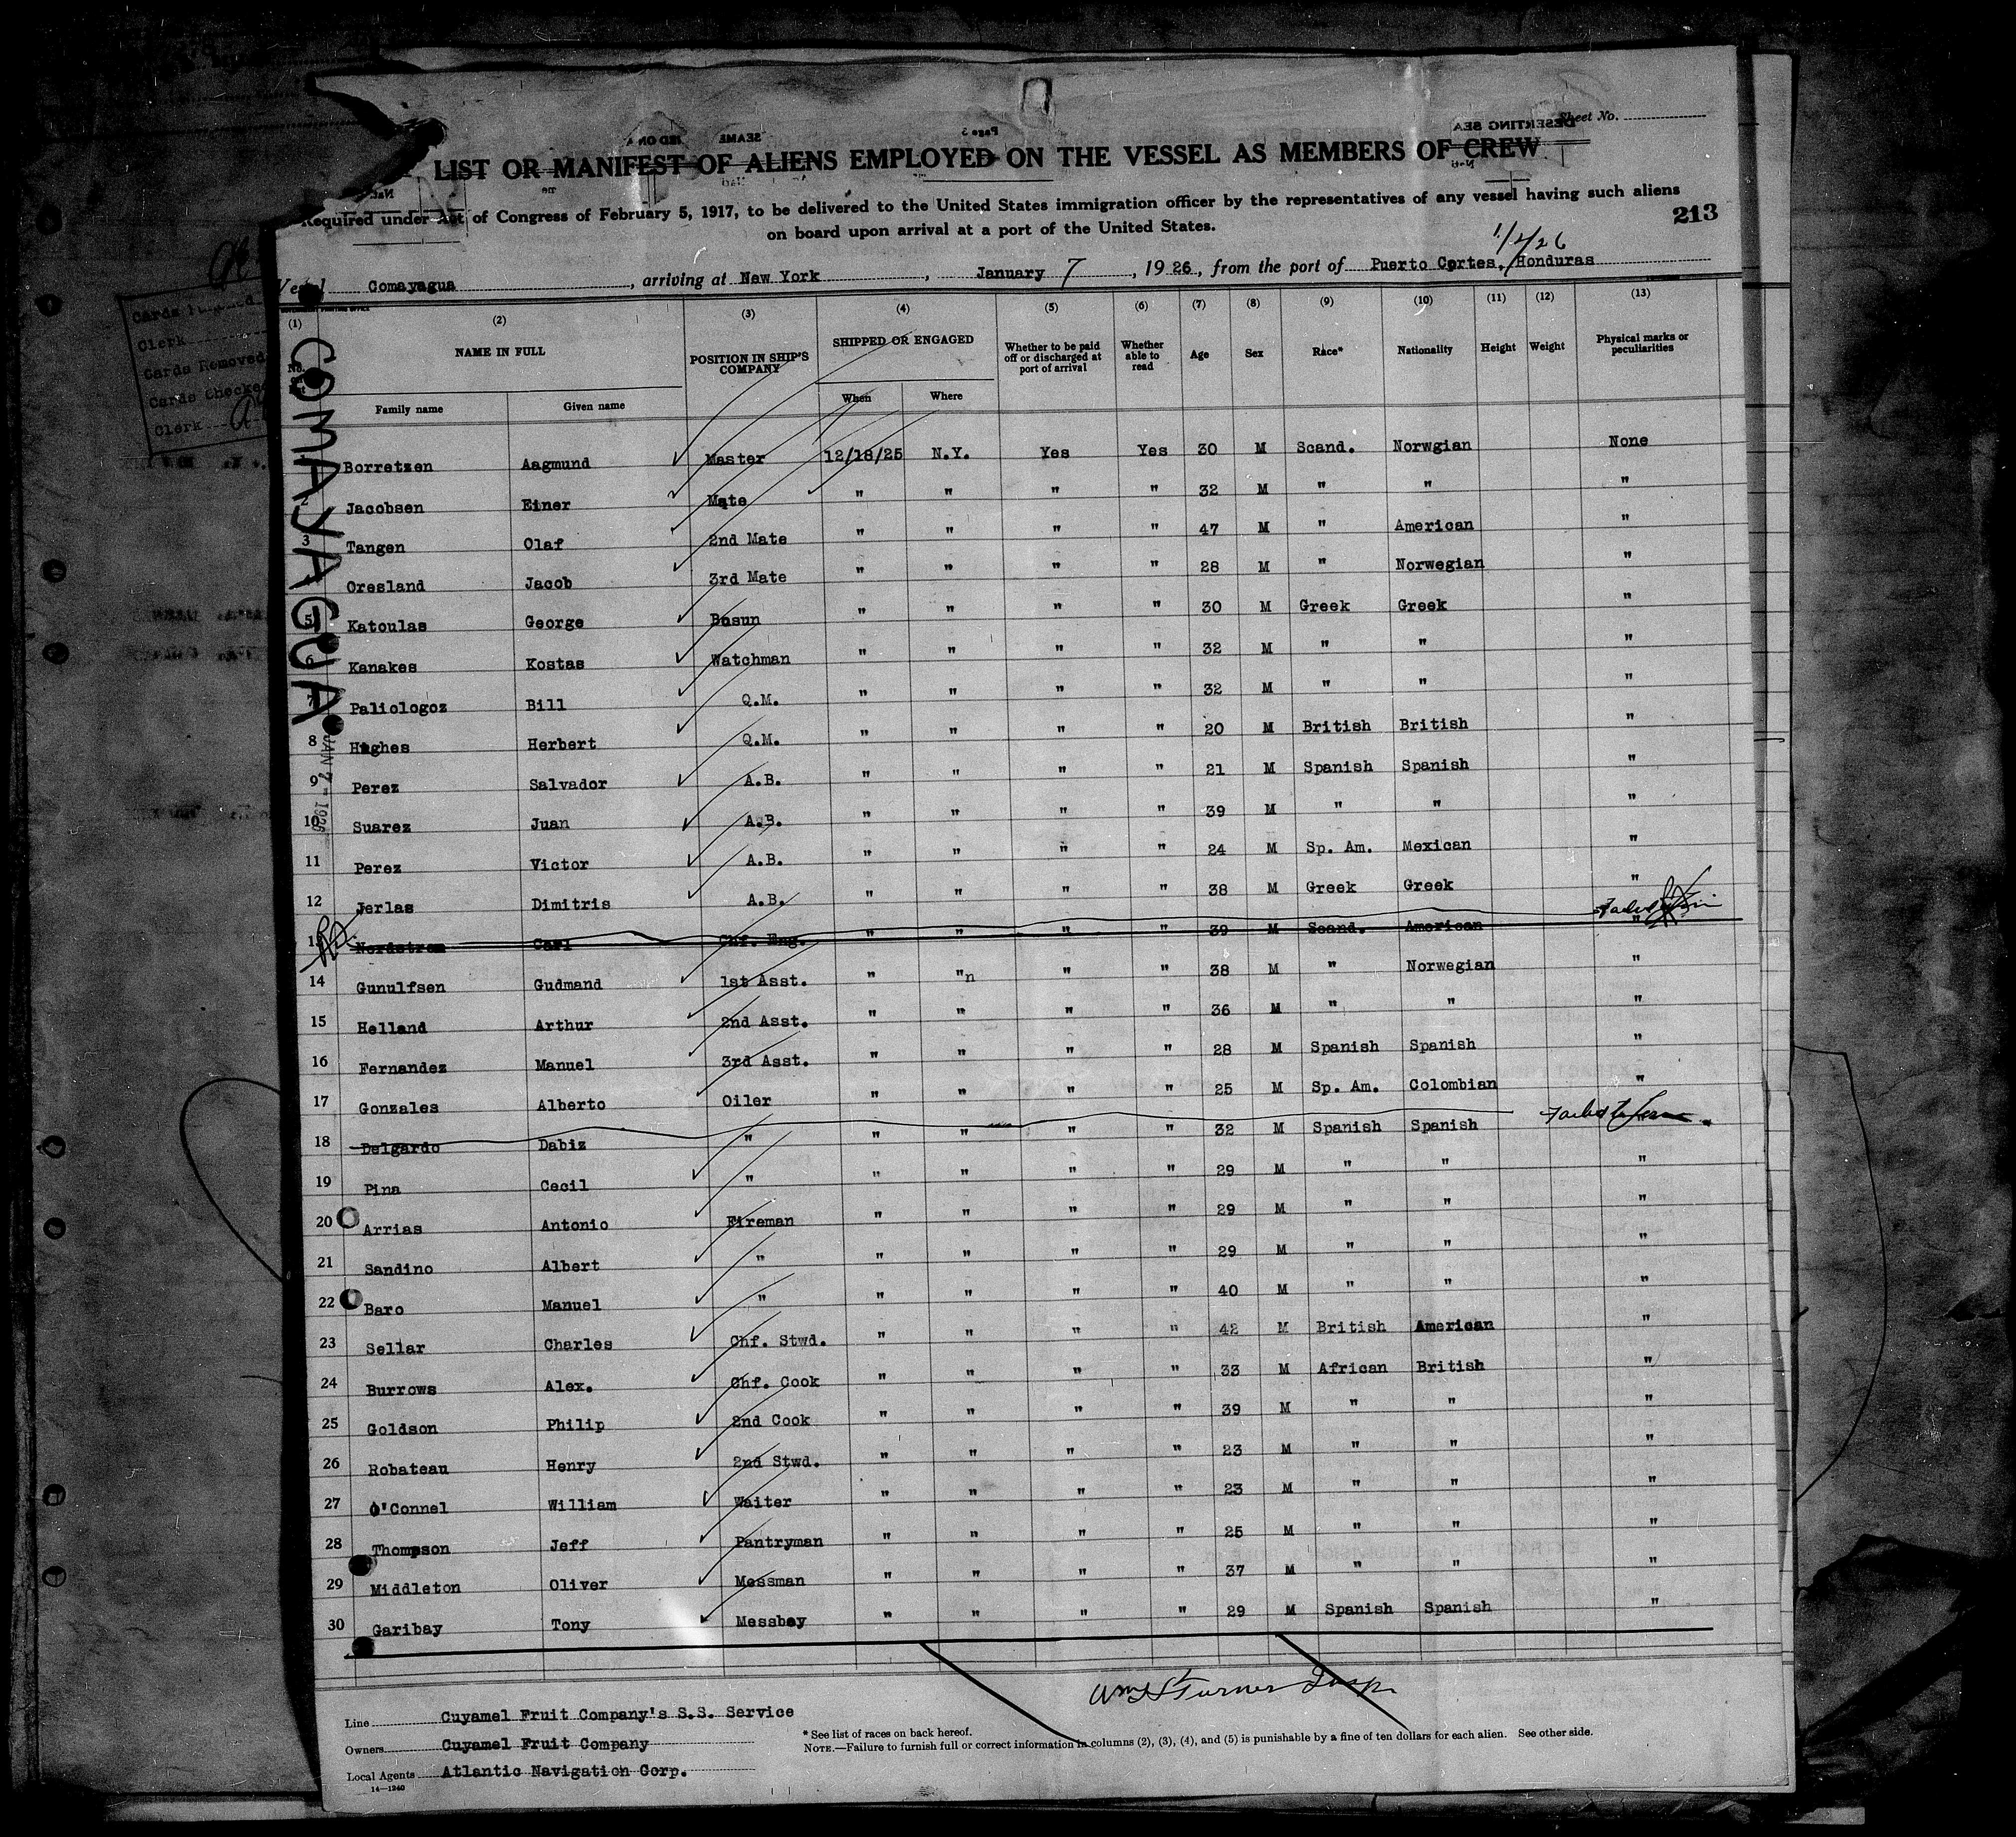 Sheet No.
LIST OR MANIFEST OF ALIENS EMPLOYED ON THE VESSEL AS MEMBERS OF CREW
Required under Act of Congress of February 5, 1917, to be delivered to the United States immigration officer by the representatives of any vessel having such aliens
on board upon arrival at a port of the United States.
213
1/2/26
Vessel Comayagua, arriving at New York, January 7, 1926, from the port of Puerto Cortes, Honduras
(1) (2) (3) (4) (5) (6) (7) (8) (9) (10) (11) (12) (13)
No. NAME IN FULL POSITION IN SHIP'S COMPANY SHIPPED OR ENGAGED Whether to be paid off or discharged at port of arrival Whether able to read Age Sex Race* Nationality Height Weight Physical marks or peculiarities
Family name Given name When Where
COMAYAGUA
JAN 7 - 1926
1 Borretzen Aagmund Master 12/18/25 N.Y. Yes Yes 30 M Scand. Norwgian None
2 Jacobsen Einer Mate " " " " 32 M " " "
3 Tangen Olaf 2nd Mate " " " " 47 M " American "
4 Oresland Jacob 3rd Mate " " " " 28 M " Norwegian "
5 Katoulas George Bosun " " " " 30 M Greek Greek "
6 Kanakes Kostas Watchman " " " " 32 M " " "
7 Paliologoz Bill Q.M. " " " " 32 M " " "
8 Hughes Herbert Q.M. " " " " 20 M British British "
9 Perez Salvador A.B. " " " " 21 M Spanish Spanish "
10 Suarez Juan A.B. " " " " 39 M " " "
11 Perez Victor A.B. " " " " 24 M Sp. Am. Mexican "
12 Jerlas Dimitris A.B. " " " " 38 M Greek Greek "
13 Nordstrom Carl Chf. Eng. " " " " 39 M Scand. American "
14 Gunulfsen Gudmand 1st Asst. " "n " " 38 M " Norwegian "
15 Helland Arthur 2nd Asst. " " " " 36 M " " "
16 Fernandez Manuel 3rd Asst. " " " " 28 M Spanish Spanish "
17 Gonzales Alberto Oiler " " " " 25 M Sp. Am. Colombian "
18 Delgardo Dabiz " " " " " 32 M Spanish Spanish Failed to Join
19 Pina Cecil " " " " " 29 M " " "
20 Arrias Antonio Fireman " " " " 29 M " " "
21 Sandino Albert " " " " " 29 M " " "
22 Baro Manuel " " " " " 40 M " " "
23 Sellar Charles Chf. Stwd. " " " " 42 M British American "
24 Burrows Alex. Chf. Cook " " " " 33 M African British "
25 Goldson Philip 2nd Cook " " " " 39 M " " "
26 Robateau Henry 2nd Stwd. " " " " 23 M " " "
27 O'Connel William Waiter " " " " 23 M " " "
28 Thompson Jeff Pantryman " " " " 25 M " " "
29 Middleton Oliver Messman " " " " 37 M " " "
30 Garibay Tony Messboy " " " " 29 M Spanish Spanish "
Turner Insp.
Line Cuyamel Fruit Company's S.S. Service
Owners Cuyamel Fruit Company
Local Agents Atlantic Navigation Corp.
14—1240
* See list of races on back hereof.
NOTE.—Failure to furnish full or correct information in columns (2), (3), (4), and (5) is punishable by a fine of ten dollars for each alien. See other side.
Clerk
Cards Removed
Cards Checked
Clerk